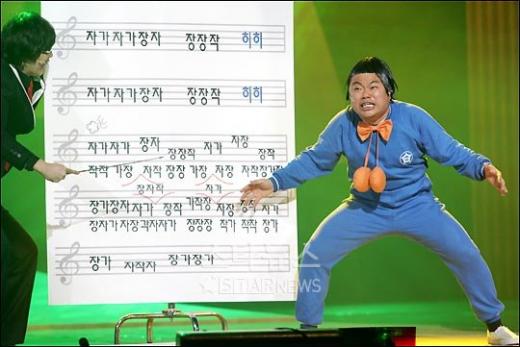 자가자가장자 장장작 히히
자가자가장자 장장작 히히
자가자가 장자 장장작 자가 자장 장작
작작 가장 자작 장장 가장 자장
장자작 자가
장가장자 자가 장작 가작장 자장 자가
정자가 장장장 작가 작작 장가
장가 자작자 장가장가
스타뉴스
STARNEWS